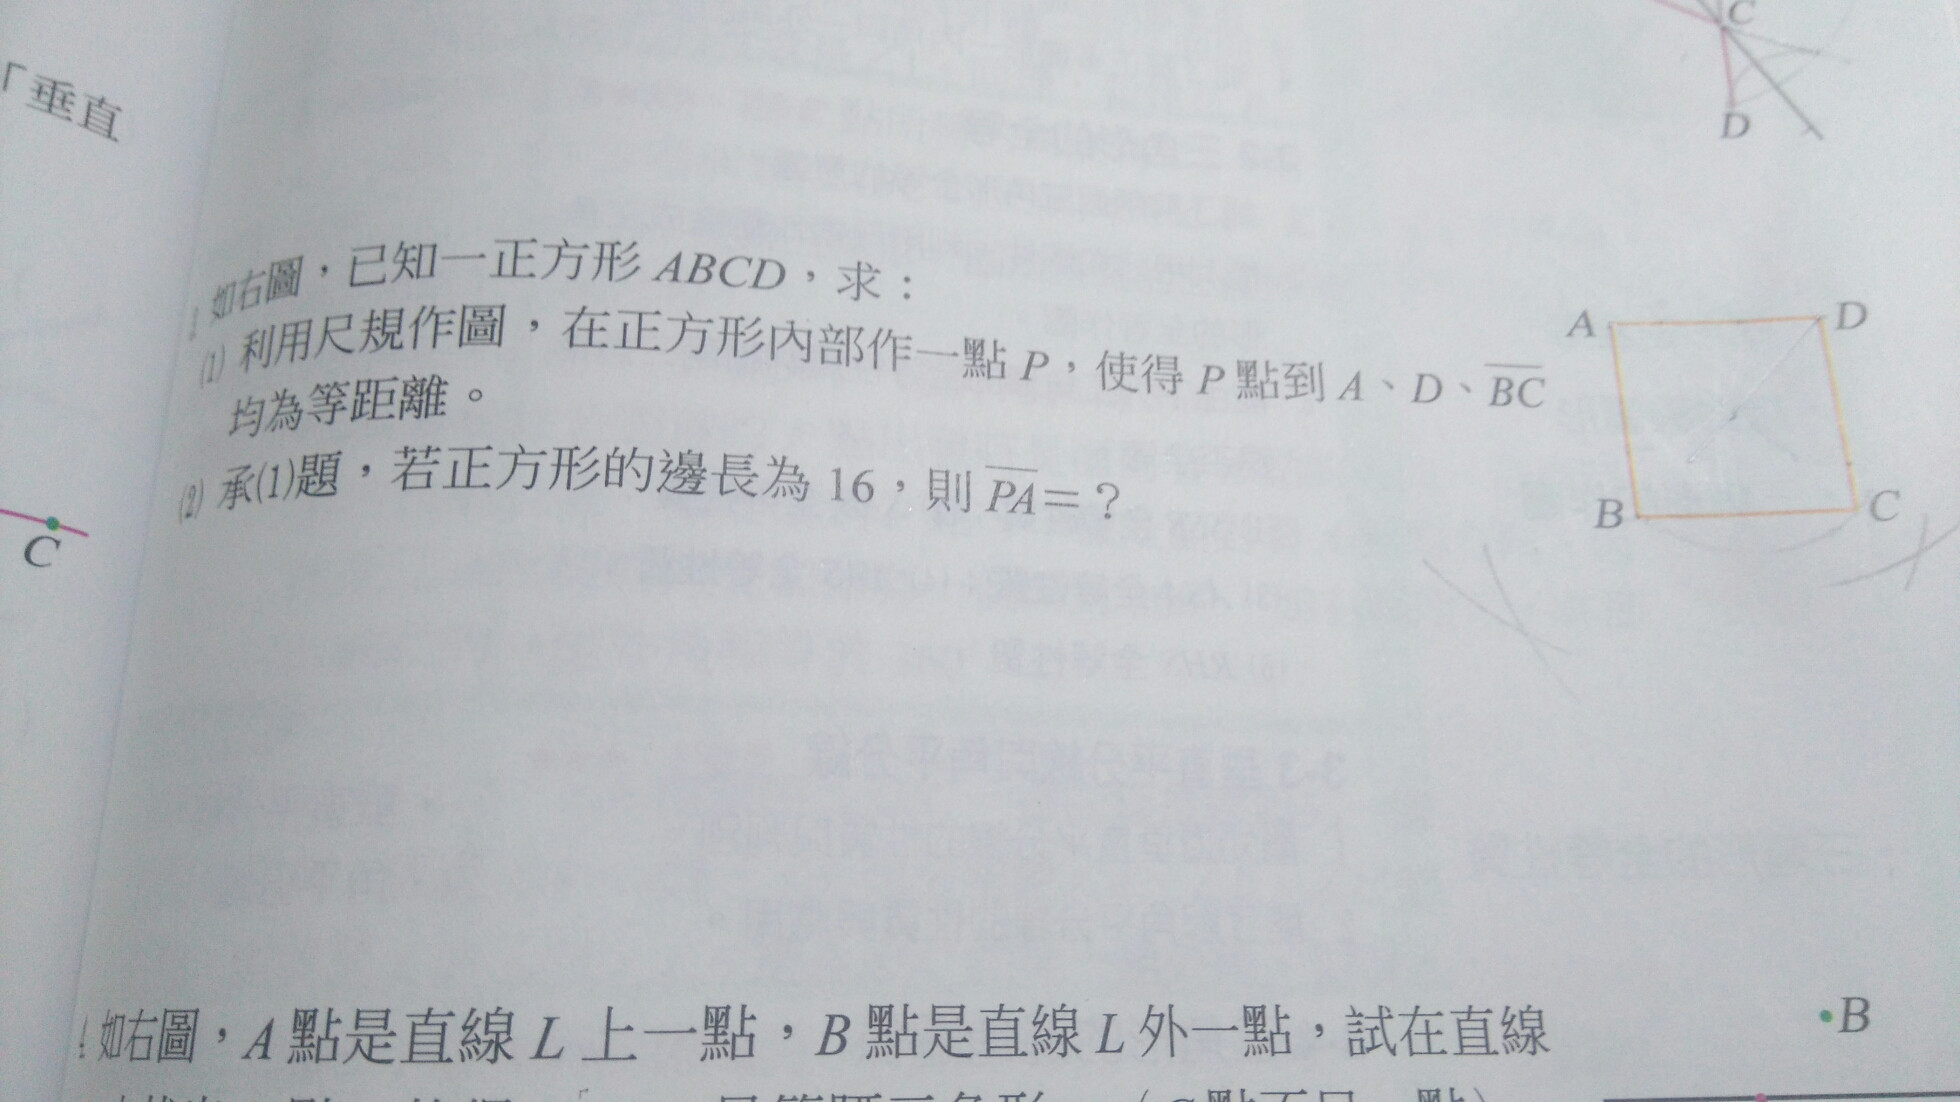 「垂直
C
D
如右圖，已知一正方形 ABCD，求：
(1) 利用尺規作圖，在正方形內部作一點 P，使得 P 點到 A、D、BC
均為等距離。
(2) 承(1)題，若正方形的邊長為 16，則 PA＝？
A
D
B
C
C
如右圖，A 點是直線 L 上一點，B 點是直線 L 外一點，試在直線
B